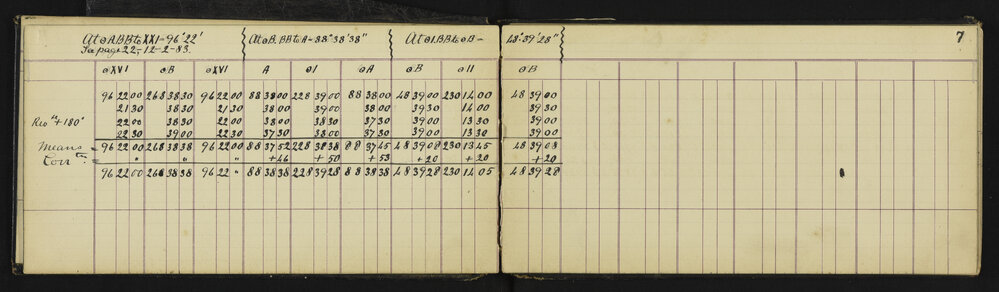 At ⊙A.BB to XXI – 96°22' At ⊙B. BB to A – 88°38'38" At ⊙I.BB to ⊙B – 48°39'28" 7
See page 22, 12–2–83.
⊙XVI ⊙B ⊙XVI A ⊙I ⊙A ⊙B ⊙II ⊙B
96 22 00 268 38 30 96 22 00 88 38 00 228 39 00 88 38 00 48 39 00 230 14 00 48 39 00
21 30 38 30 21 30 38 00 39 00 38 00 39 30 14 00 39 30
Reo + 180° 22 00 38 30 22 00 38 00 38 30 37 30 39 00 13 30 39 00
22 30 39 00 22 30 37 30 38 00 37 30 39 00 13 30 39 00
Means = 96 22 00 268 38 38 96 22 00 88 37 52 228 38 38 88 37 45 48 39 08 230 13 45 48 39 08
Corrtn = " " " +46 +50 +53 +20 +20 +20
96 22 00 268 38 38 96 22 " 88 38 38 228 39 28 88 38 38 48 39 28 230 14 05 48 39 28